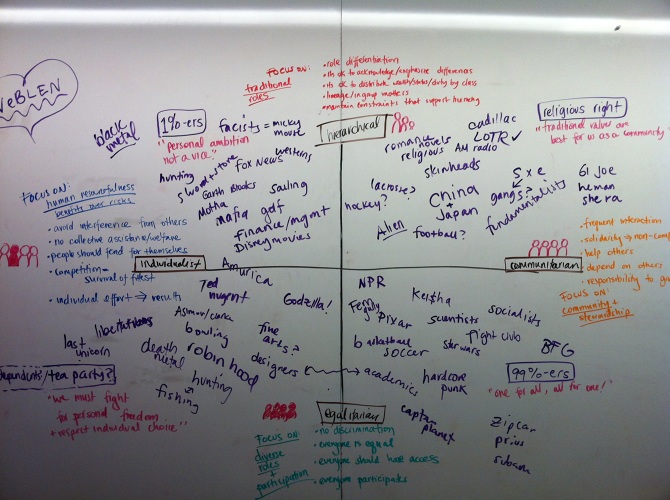 VEBLEN
FOCUS ON:
traditional
roles
• role differentiation
• its ok to acknowledge/emphasize differences
• its ok to distribute wealth/status/duty by class
• lineage/ingroup matters
• maintain constraints that support hierarchy
hierarchical
black
metal
1%-ers
"personal ambition
not a vice."
facists = micky
mouse
hunting
Fox News
westerns
Garth Brooks
sailing
Mafia
golf
finance/mgmt
Disney movies
romance
novels
religious
AM radio
cadillac
LOTR ✓
skinheads
religious right
"traditional value are
best for us as a community"
lacrosse?
hockey?
China
+
Japan
Alien
football?
s x e
gangs?
fundamentalists
GI Joe
heman
shera
FOCUS ON:
human resourcefulness
benefits over risks
• avoid interference from others
• no collective assistance/welfare
• people should fend for themselves
• competition =
survival of fittest
• individual effort → results
individualist
communitarian
• frequent interaction
• solidarity → non-comp
• help others
• depend on others
• responsibility to
FOCUS ON:
community +
stewardship
America
Ted
nugent
Godzilla!
libertarians
bowling
fine
arts?
last
unicorn
death
metal
robin hood
designers
hunting
fishing
dependents/tea party?
"we must fight
for personal freedom
+ respect individual choice"
NPR
Fern
gully
Ke$ha
Pixar
scientists
socialists
basketball
soccer
star wars
fight club
BFG
academics
hardcore
punk
99%-ers
"one for all, all for one!"
captain
planet
Zipcar
prius
subaru
egalitarian
FOCUS ON:
diverse
roles
+
participation
• no discrimination
• everyone is equal
• everyone should have access
• everyone participates